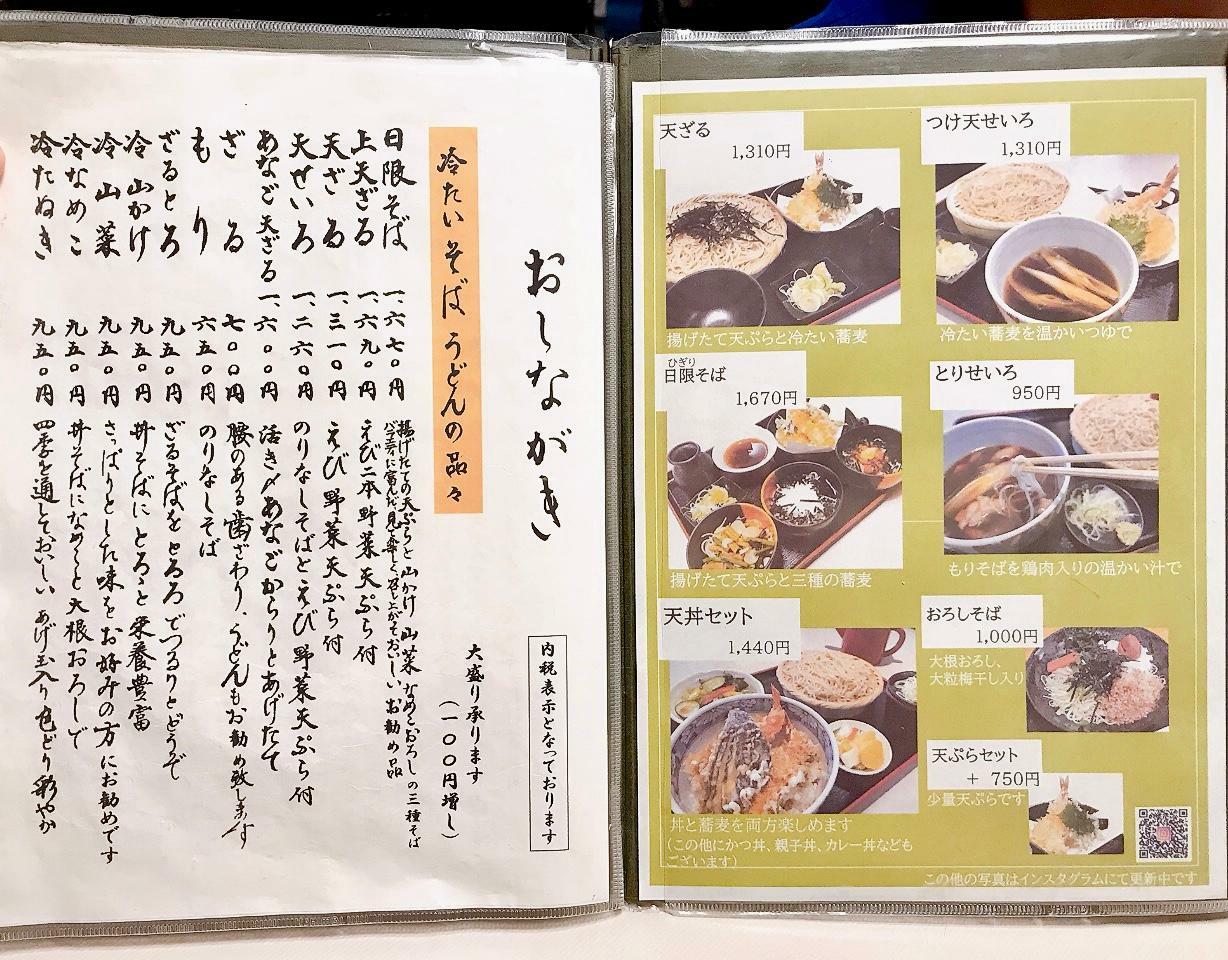 おしながき
内税表示となっております
大盛り承ります
(一〇〇円増し)
冷たいそばうどんの品々
日限そば 一、六七〇円 揚げたての天ぷらと山かけ 山菜 なめこおろしの三種そば
バラエティに富んだ見た目美しく召し上がそおいしいお勧め品
上天ざる 一、六九〇円 えび二本野菜天ぷら付
天ざる 一、三一〇円 えび野菜天ぷら付
天せいろ 一、二六〇円 のりなしそばとえび野菜天ぷら付
あなご天ざる 一、六〇〇円 活き〆あなごからりとあげたて
ざる 七〇〇円 腰のある歯ざわり、うどんもお勧め致します
もり 六五〇円 のりなしそば
ざるとろ 九五〇円 ざるそばをとろろでつるりとどうぞ
冷山かけ 九五〇円 丼そばにとろろと栄養豊富
冷山菜 九五〇円 さっぱりとした味をお好みの方にお勧めです
冷なめこ 九五〇円 丼そばになめこと大根おろしで
冷たぬき 九五〇円 四季を通しておいしいあげ玉入り色どり彩やか
天ざる
1,310円
揚げたて天ぷらと冷たい蕎麦
つけ天せいろ
1,310円
冷たい蕎麦を温かいつゆで
ひぎり
日限そば
1,670円
揚げたて天ぷらと三種の蕎麦
とりせいろ
950円
もりそばを鶏肉入りの温かい汁で
天丼セット
1,440円
丼と蕎麦を両方楽しめます
(この他にかつ丼、親子丼、カレー丼なども
ございます)
おろしそば
1,000円
大根おろし、
大粒梅干し入り
天ぷらセット
+ 750円
少量天ぷらです
この他の写真はインスタグラムにて更新中です